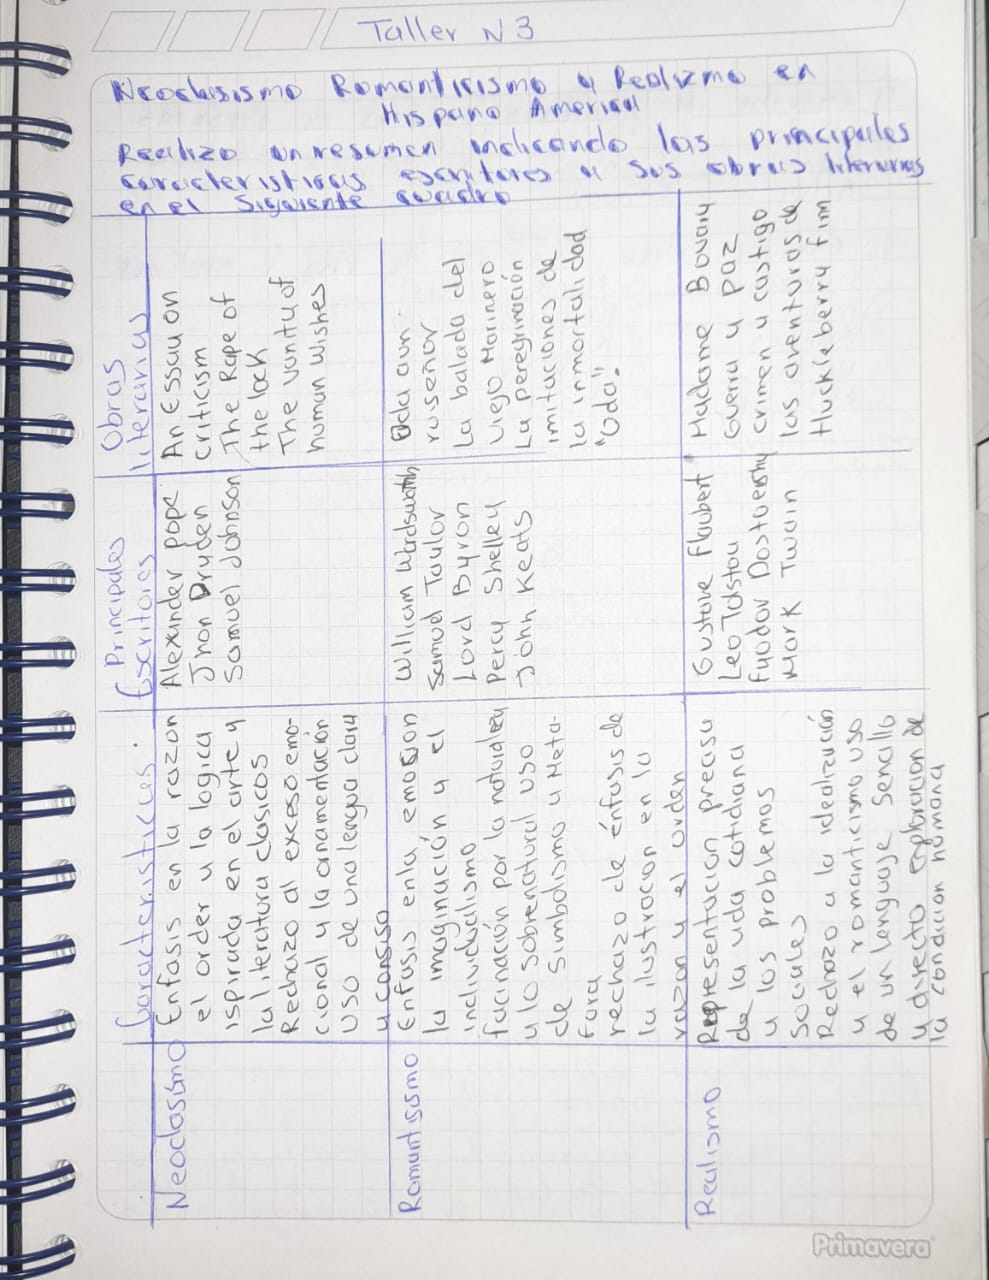 Taller N 3
Neoclasismo Romanticismo y Realizmo en
Hispano American
Realizo un resumen indicando las principales
caracteristicas escritores y sus obras literarias
en el siguiente quadro
Caracteristicas.
Principales
Escritores
Obras
literarias
Neoclasismo
Enfasis en la razon
el order y la logica
ispirada en el arte y
la literatura clasicos
Rechazo al exceso emo-
cional y la ornamentación
uso de una lengua clara
y consiso
Alexander pope
Jhon Dryden
Samuel Johnson
An Essay on
criticism
The Rape of
the lock
The vanity of
human wishes
Romantisismo
Enfasis enla emosion
la imaginación y el
individualismo
facinación por la natuidley
y lo sobrenatural uso
de simbolismo y Meta-
fora
rechazo de énfasis de
la ilustracion en la
razon y el orden
William Wordswotth
Samuel Taylor
Lord Byron
Percy Shelley
John Keats
Oda aun
ruiseñor
La balada del
viejo Marinero
La peregrinación
imitaciones de
la inmortalidad
"Oda".
Realismo
Representacion precisa
de la vida cotidiana
y los problemas
sociales
Rechazo a la idealización
y el romanticismo uso
de un lenguaje sencillo
y directo exploracion de
la condicion humana
Gustave flaubert
Leo Tolstoy
fyodor Dostoevsky
Mark Twain
Madame Bovary
Guerra y paz
crimen y castigo
las aventuras de
Huckleberry finn
Primavera